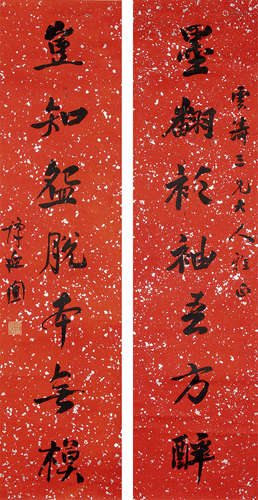 雲濤三兄大人雅正
墨翻衫袖吾方醉
豈知盤脫本無模
譚延闓